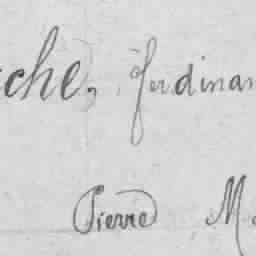 che, Ferdinan
Pierre M